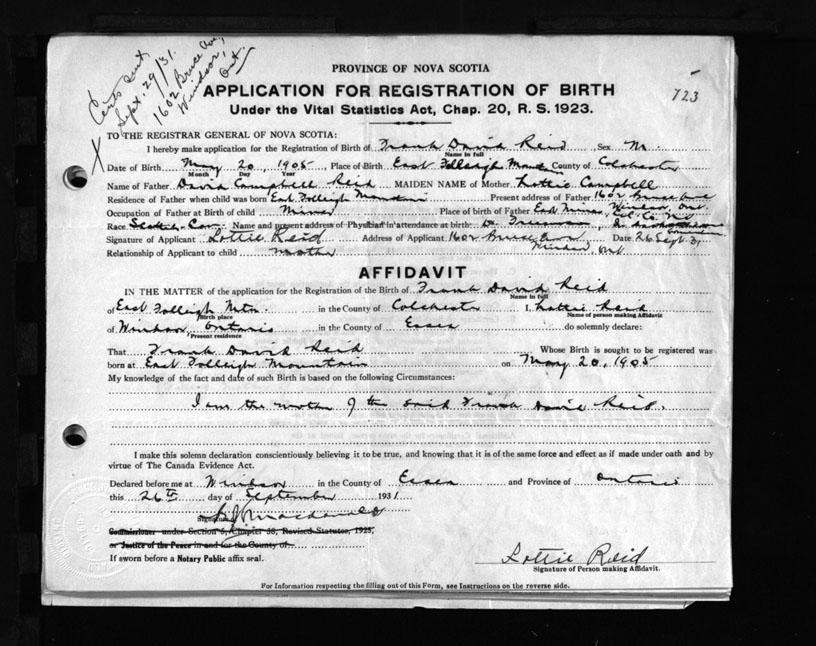 Certs sent
Sept. 29/31.
1602 Bruce Ave.,
Windsor,
Ont.
723
PROVINCE OF NOVA SCOTIA
APPLICATION FOR REGISTRATION OF BIRTH
Under the Vital Statistics Act, Chap. 20, R. S. 1923.
X
TO THE REGISTRAR GENERAL OF NOVA SCOTIA:
I hereby make application for the Registration of Birth of Frank David Reid, Sex M.
Name in full
Date of Birth May 20, 1905 Place of Birth East Folleigh Mountain County of Colchester
Month Day Year
Name of Father David Campbell Reid MAIDEN NAME of Mother Lottie Campbell
Residence of Father when child was born East Folleigh Mountain Present address of Father 1602 Bruce Ave
Windsor, Ont.
Occupation of Father at Birth of child Miner Place of birth of Father East Mines, Col. Co. NS
Race Name and present address of Physician in attendance at birth: Dr.
Signature of Applicant Lottie Reid Address of Applicant 1602 Bruce Ave Date 26 Sept. 31
Windsor, Ont
Relationship of Applicant to child mother
AFFIDAVIT
IN THE MATTER of the application for the Registration of the Birth of Frank David Reid
Name in full
of East Folleigh Mtn. in the County of Colchester I, Lottie Reid
Birth place Name of person making Affidavit
of Windsor, Ontario in the County of Essex do solemnly declare:
Present residence
That Frank David Reid Whose Birth is sought to be registered was
born at East Folleigh Mountain on May 20, 1905
My knowledge of the fact and date of such Birth is based on the following Circumstances:
I am the mother of the said Frank David Reid.
I make this solemn declaration conscientiously believing it to be true, and knowing that it is of the same force and effect as if made under oath and by
virtue of The Canada Evidence Act.
Declared before me at Windsor in the County of Essex and Province of Ontario
this 26th day of September 1931
Signature
Commissioner under Section 6, Chapter 38, Revised Statutes, 1923,
or Justice of the Peace in and for the County of
If sworn before a Notary Public affix seal.
Lottie Reid
Signature of Person making Affidavit.
For Information respecting the filling out of this Form, see Instructions on the reverse side.